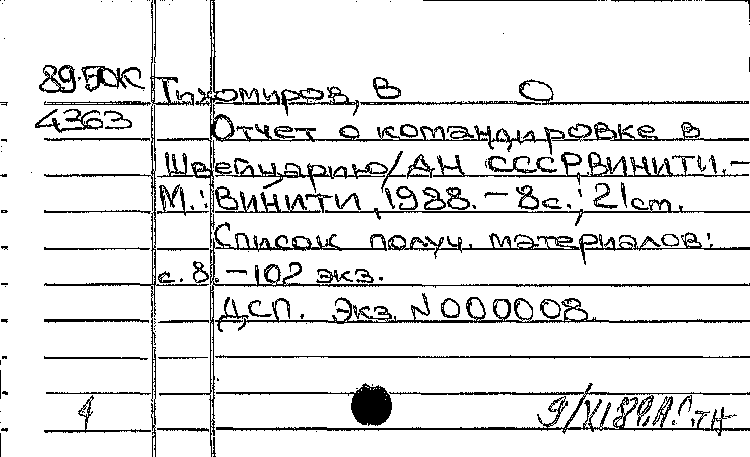 89-5ДСК Тихомиров, В О
4363 Отчет о командировке в
Швейцарию/АН СССР, ВИНИТИ.-
М.: ВИНИТИ, 1988.-8с.; 21cm.
Список получ. материалов:
с. 8.-102 экз.
ДСП. Экз. N000008.
4 9/XI 89